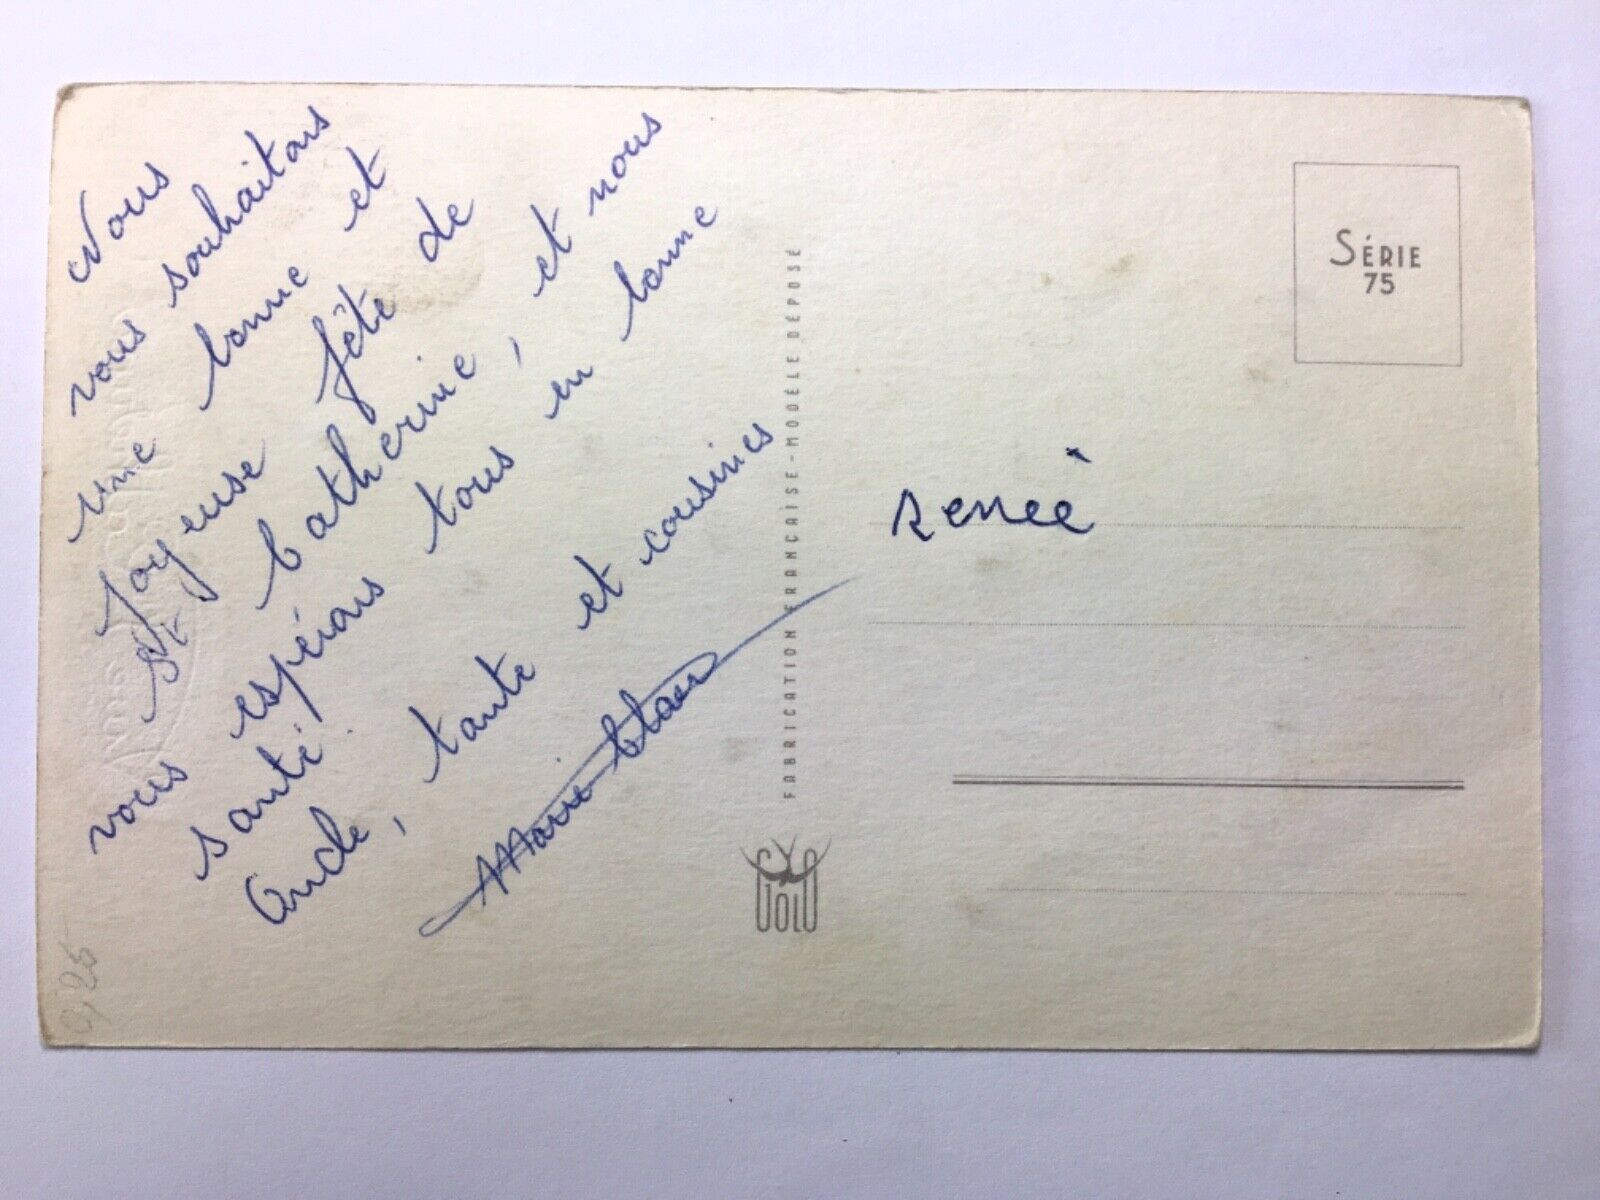 Nous
vous souhaitons
une bonne et
Joyeuse fête de
St Catherine, et nous
vous espérons tous en bonne
santé.
Oncle, tante et cousines
Marie-Claire
Renée
SÉRIE
75
FABRICATION FRANÇAISE - MODÈLE DÉPOSÉ
0,25